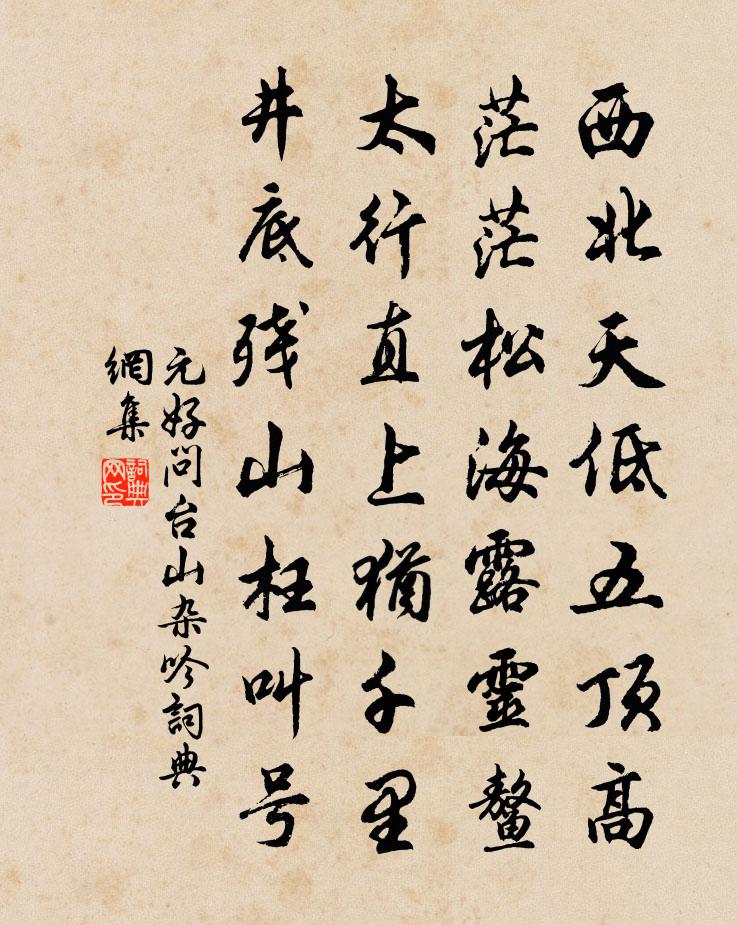 西北天低五顶高
茫茫松海露靈鳌
太行直上猶千里
井底残山枉叫号
元好问台山杂吟詞典
網集
詞典网印